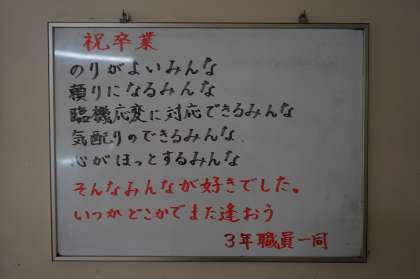 祝卒業
のりがよいみんな
頼りになるみんな
臨機応変に対応できるみんな
気配りのできるみんな
心がほっとするみんな
そんなみんなが好きでした。
いつかどこかでまた逢おう
3年職員一同